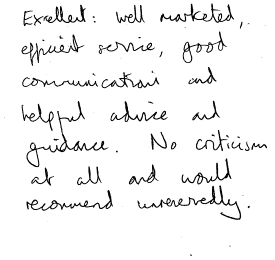 Excellent: well marketed,
efficient service, good
communications and
helpful advice and
guidance. No criticism
at all and would
recommend unreservedly.